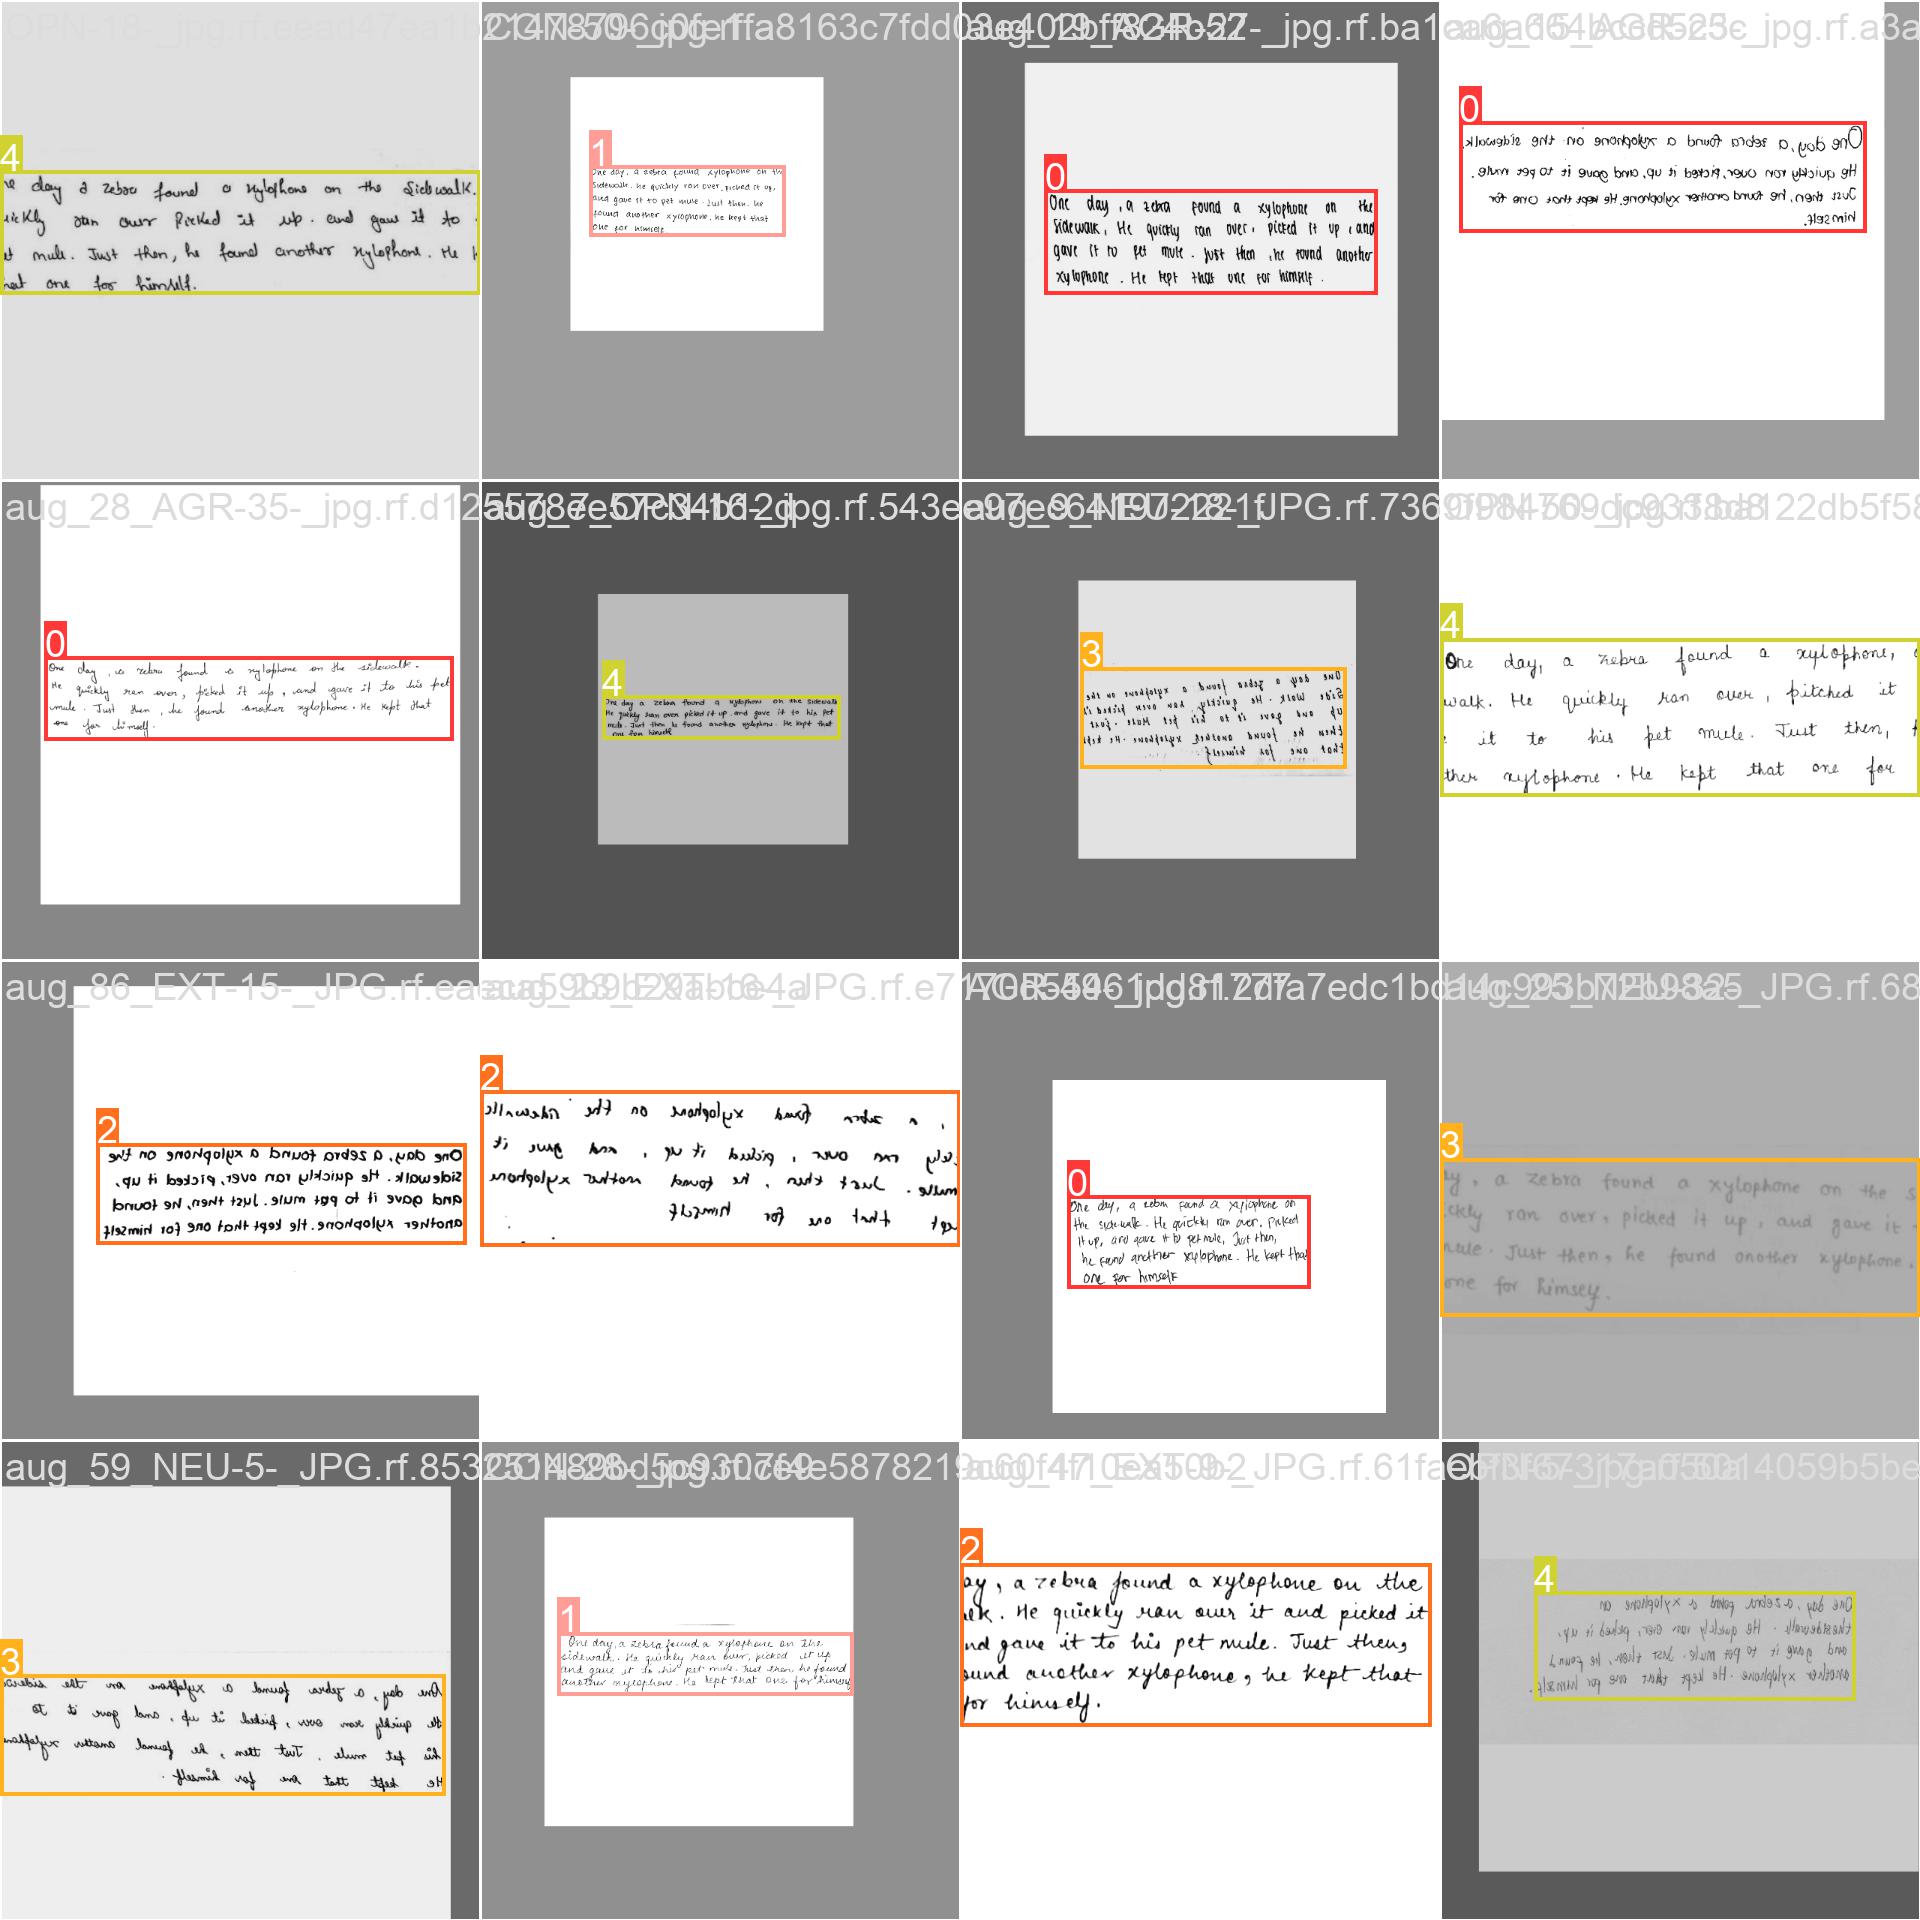 4
ne day a zebra found a xylophone on the Sidewalk.
uickly ran over Picked it up. and gave it to
et mule. Just then, he found another xylophone. He k
hat one for himself.
1
One day, a zebra found xylophone on the
Sidewalk. he quickly ran over, picked it up,
and gave it to pet mule. Just then. he
found another xylophone, he kept that
one for himself
0
One day, a zebra found a xylophone on the
Sidewalk, He quickly ran over, picked it up, and
gave it to pet mule. Just then, he found another
xylophone. He kept that one for himself.
0
One day, a zebra found a xylophone on the sidewalk.
He quickly ran over, picked it up, and gave it to pet mule.
Just then, he found another xylophone. He kept that one for
himself.
aug_28_AGR-35-_jpg.rf.d12
0
One day, a zebra found a xylophone on the sidewalk.
He quickly ran over, picked it up, and gave it to his pet
mule. Just then, he found another xylophone. He kept that
one for himself.
4
One day a zebra found a xylophone on the Sidewalk
He quickly ran over picked it up and gave it to his pet
mule. Just then he found another xylophone. He kept that
one for himself
3
One day a zebra found a xylophone on the
Side Walk. He quickly ran over picked it
up and gave it to his pet Mule. Just
then he found another xylophone. He kept
that one for himself.
4
One day, a zebra found a xylophone,
walk. He quickly ran over, pitched it
it to his pet mule. Just then,
ther xylophone. He kept that one for
aug_86_EXT-15-_JPG.rf.ea
2
One day, a zebra found a xylophone on the
sidewalk. He quickly ran over, picked it up,
and gave it to pet mule. Just then, he found
another xylophone. He kept that one for himself
2
, a zebra found xylophone on the sidewalk
kly ran over, picked it up, and gave it
mule. Just then, he found another xylophone
kept that one for himself
0
One day, a zebra found a xylophone on
the sidewalk. He quickly ran over, Picked
it up, and gave it to pet mule, Just then,
he found another xylophone. He kept that
one for himself
3
ay, a zebra found a xylophone on the s
ckly ran over, picked it up, and gave it
mule. Just then, he found another xylophone.
one for himself.
aug_59_NEU-5-_JPG.rf.853
3
One day, a zebra found a xylophone on the sidewa
He quickly ran over, picked it up, and gave it to
his pet mule. Just then, he found another xylophone
He kept that one for himself.
1
One day, a zebra found a xylophone on the
sidewalk. He quickly ran over, picked it up
and gave it to his pet mule. Just then he found
another xylophone. He kept that one for himself
2
ay, a zebra found a xylophone on the
alk. He quickly ran over it and picked it
nd gave it to his pet mule. Just then,
ound another xylophone, he kept that
for himself.
4
One day, a zebra found a xylophone on
the sidewalk. He quickly ran over, picked it up,
and gave it to pet mule. Just then, he found
another xylophone. He kept that one for himself.